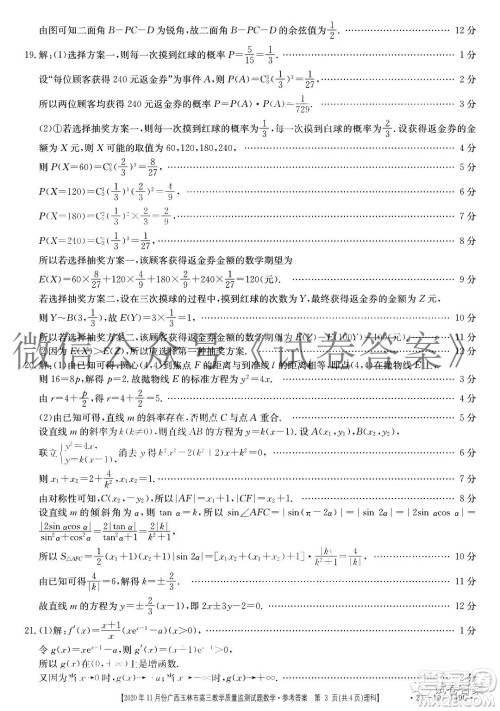 由图可知二面角 B-PC-D 为锐角,故二面角 B-PC-D 的余弦值为 1/2. 12 分
19.解:(1)选择方案一,则每一次摸到红球的概率 P=5/15=1/3. 1 分
设“每位顾客获得 240 元返金券”为事件 A,则 P(A)=C₃³(1/3)³=1/27. 2 分
所以两位顾客均获得 240 元返金券的概率 P=P(A)·P(A)=1/729. 3 分
(2)①若选择抽奖方案一,则每一次摸到红球的概率为1/3,每一次摸到白球的概率为2/3.
设获得返金券金额为 X 元,则 X 可能的取值为 60,120,180,240, 4 分
则 P(X=60)=C₃⁰(2/3)³=8/27, 5 分
P(X=120)=C₃¹(1/3)¹(2/3)²=4/9. 6 分
P(X=180)=C₃²(1/3)²×2/3=2/9, 7 分
P(X=240)=C₃³(1/3)³=1/27. 8 分
所以若选择抽奖方案一,该顾客获得返金券金额的数学期望为
E(X)=60×8/27+120×4/9+180×2/9+240×1/27=120(元). 9 分
若选择抽奖方案二,设在三次摸球的过程中,摸到红球的次数为 Y,最终获得返金券的金额为 Z 元,
则 Y~B(3,1/3),故 E(Y)=3×1/3=1. 10 分
所以若选择抽奖方案二,该顾客获得返金券金额的数学期望为 E(Z)=E(100Y)=100(元). 11 分
②因为 E(X)>E(Z),所以应选择第一种抽奖方案. 12 分
微信公众号《试卷答案》
20.解:(1)由已知可得,圆心(4,4)到焦点 F 的距离与到准线的距离相等,即点(4,4)在抛物线 E 上,
则 16=8p,解得 p=2.故抛物线 E 的标准方程为 y²=4x.
由 r=4+p/2,得 r=5. 4 分
(2)由已知可得,直线 m 的斜率存在,否则点 C 与点 A 重合.
设直线 m 的斜率为 k(k≠0),则直线 AB 的方程为 y=k(x+1).设 A(x₁,y₁),B(x₂,y₂),
联立{y²=4x, y=k(x+1),消去 y 得 k²x²+2(k²-2)x+k²=0. 6 分
则 x₁+x₂=-2+4/k²,x₁x₂=1. 7 分
由对称性可知,C(x₂,-y₂),所以|AF|=x₁+1,|CF|=x₂+1. 8 分
设直线 m 的倾斜角为 α,则 tan α=k,所以 sin∠AFC=|sin(π-2α)|=|sin 2α|=|2sin αcos α|=
|2sin αcos α|/(sin²α+cos²α)=2|tan α|/(tan²α+1)=2|k|/(k²+1),
所以 S△AFC=1/2(x₁+1)(x₂+1)|sin 2α|=[x₁x₂+(x₁+x₂)+1]·|k|/(k²+1)=4/|k|. 10 分
由已知可得4/|k|=6,解得 k=±2/3. 11 分
故直线 m 的方程为 y=±2/3(x+1),即 2x±3y+2=0. 12 分
21.(1)解:f′(x)=
令 g(x)=
所以 g(x)在
【2020 年 11 月份广西玉林市高三教学质量监测试题数学·参考答案 第 3 页(共 4 页)理科】